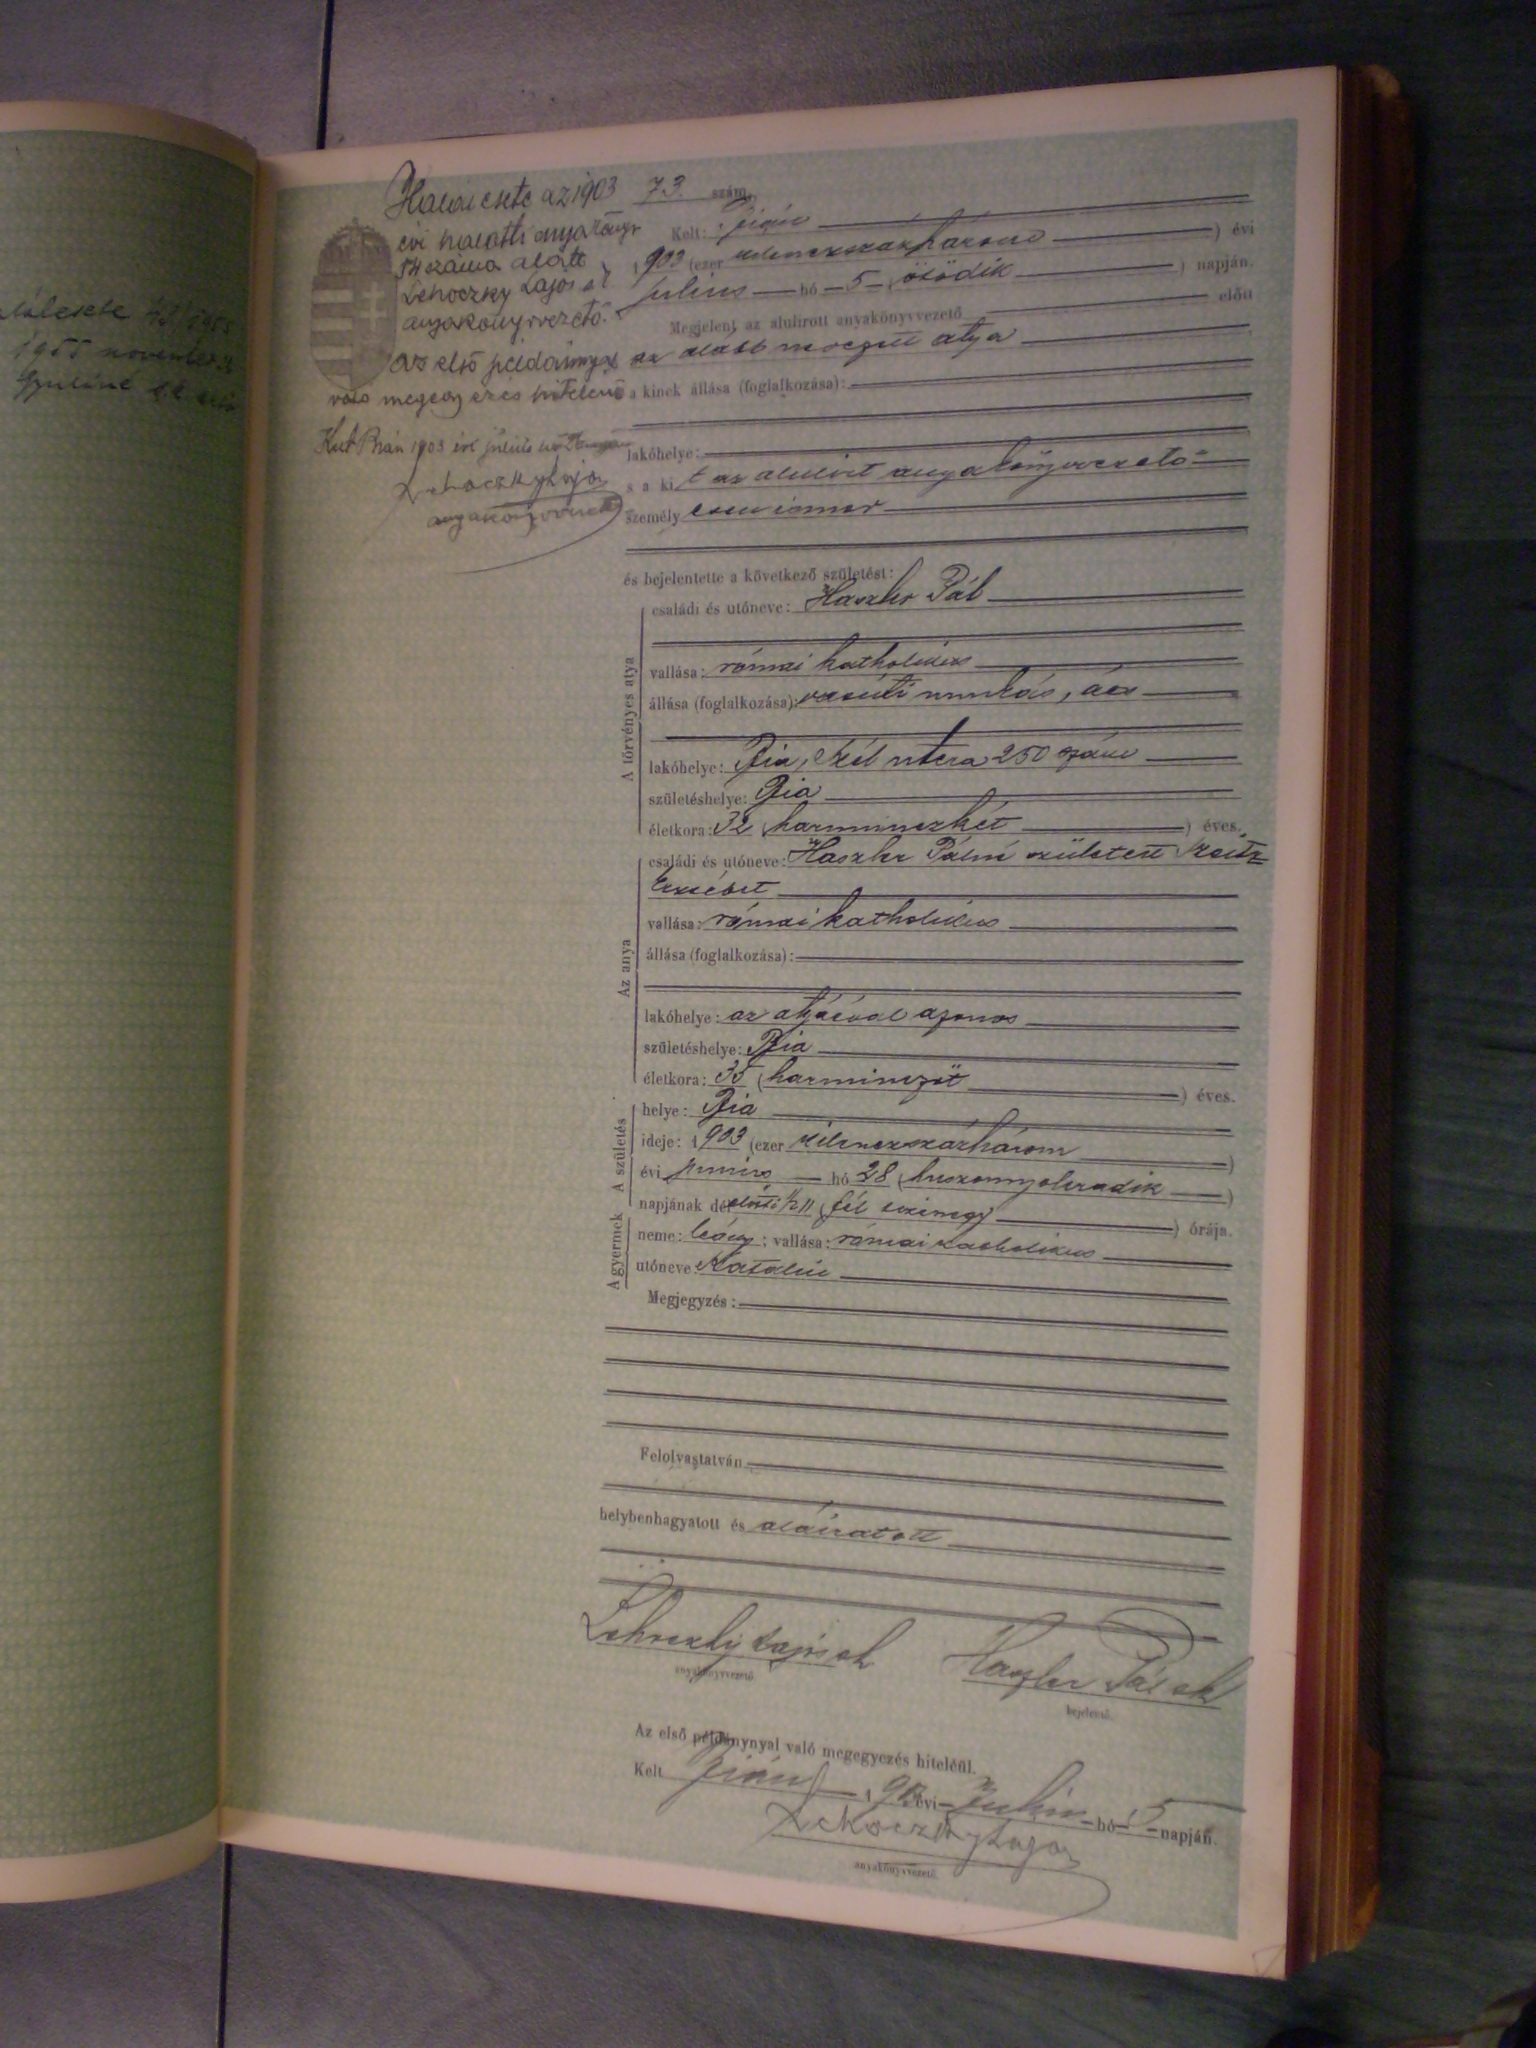 Halálesete az 1903
évi halotti anyakönyv
54 száma alatt
Lehoczky Lajos s. k.
anyakönyvvezető.
az első példánnyal
való megegyezés hiteléül
Kelt Bián 1903 évi július hó
Lehoczky Lajos
anyakönyvvezető
1955 november
73. szám.
Kelt: Bián
1903 (ezer kilenczszázhárom) évi
július hó 5 (ötödik) napján.
Megjelent az alulirott anyakönyvvezető előtt
az alább nevezett atya
a kinek állása (foglalkozása):
lakóhelye:
s a kit az alulirt anyakönyvvezető
személyesen ismer
és bejelentette a következő születést:
A törvényes atya
családi és utóneve: Haszler Pál
vallása: római katholikus
állása (foglalkozása): vasúti munkás, ács
lakóhelye: Bia, Szél utcza 250 szám
születéshelye: Bia
életkora: 32 (harminczkét) éves.
Az anya
családi és utóneve: Haszler Pálné született Szeitz
Erzsébet
vallása: római katholikus
állása (foglalkozása):
lakóhelye: az atyáéval azonos
születéshelye: Bia
életkora: 35 (harminczöt) éves.
A születés
helye: Bia
ideje: 1903 (ezer kilenczszázhárom)
évi junius hó 28 (huszonnyolczadik)
napjának délelőtti 1/2 11 (fél tizenegy) órája.
A gyermek
neme: leány; vallása: római katholikus
utóneve: Katalin
Megjegyzés:
Felolvastatván
helybenhagyatott és aláiratott
Lehoczky Lajos sk
anyakönyvvezető
Haszler Pál sk
bejelentő.
Az első példánynyal való megegyezés hiteléül.
Kelt Bián 1903 évi Julius hó 5 napján.
Lehoczky Lajos
anyakönyvvezető.